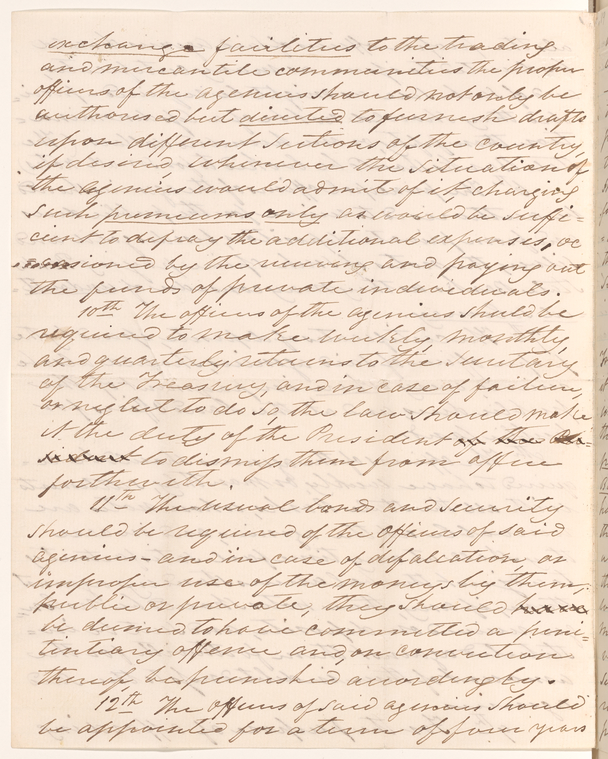 exchange facilities to the trading
and mercantile communities the proper
officers of the agencies should not only be
authorised but directed to furnish drafts
upon different Sections of the country
if desired, whenever the situation of
the agencies would admit of it charging
such premiums only as would be suffi=
cient to defray the additional expenses, oc
casioned by the receiving and paying out
the funds of private individuals.
10th The officers of the agencies should be
required to make weekly, monthly
and quarterly returns to the Secretary
of the Treasury, and in case of failure,
or neglect to do so, the law should make
it the duty of the President
to dismiss them from office
forthwith.
11th The usual bonds and security
should be required of the officers of said
agencies - and in case of defalcation or
improper use of the moneys by them,
public or private, they should
be deemed to have committed a peni=
tentiary offence and, on conviction
thereof be punished accordingly.
12th The officers of said agencies should
be appointed for a term of four years